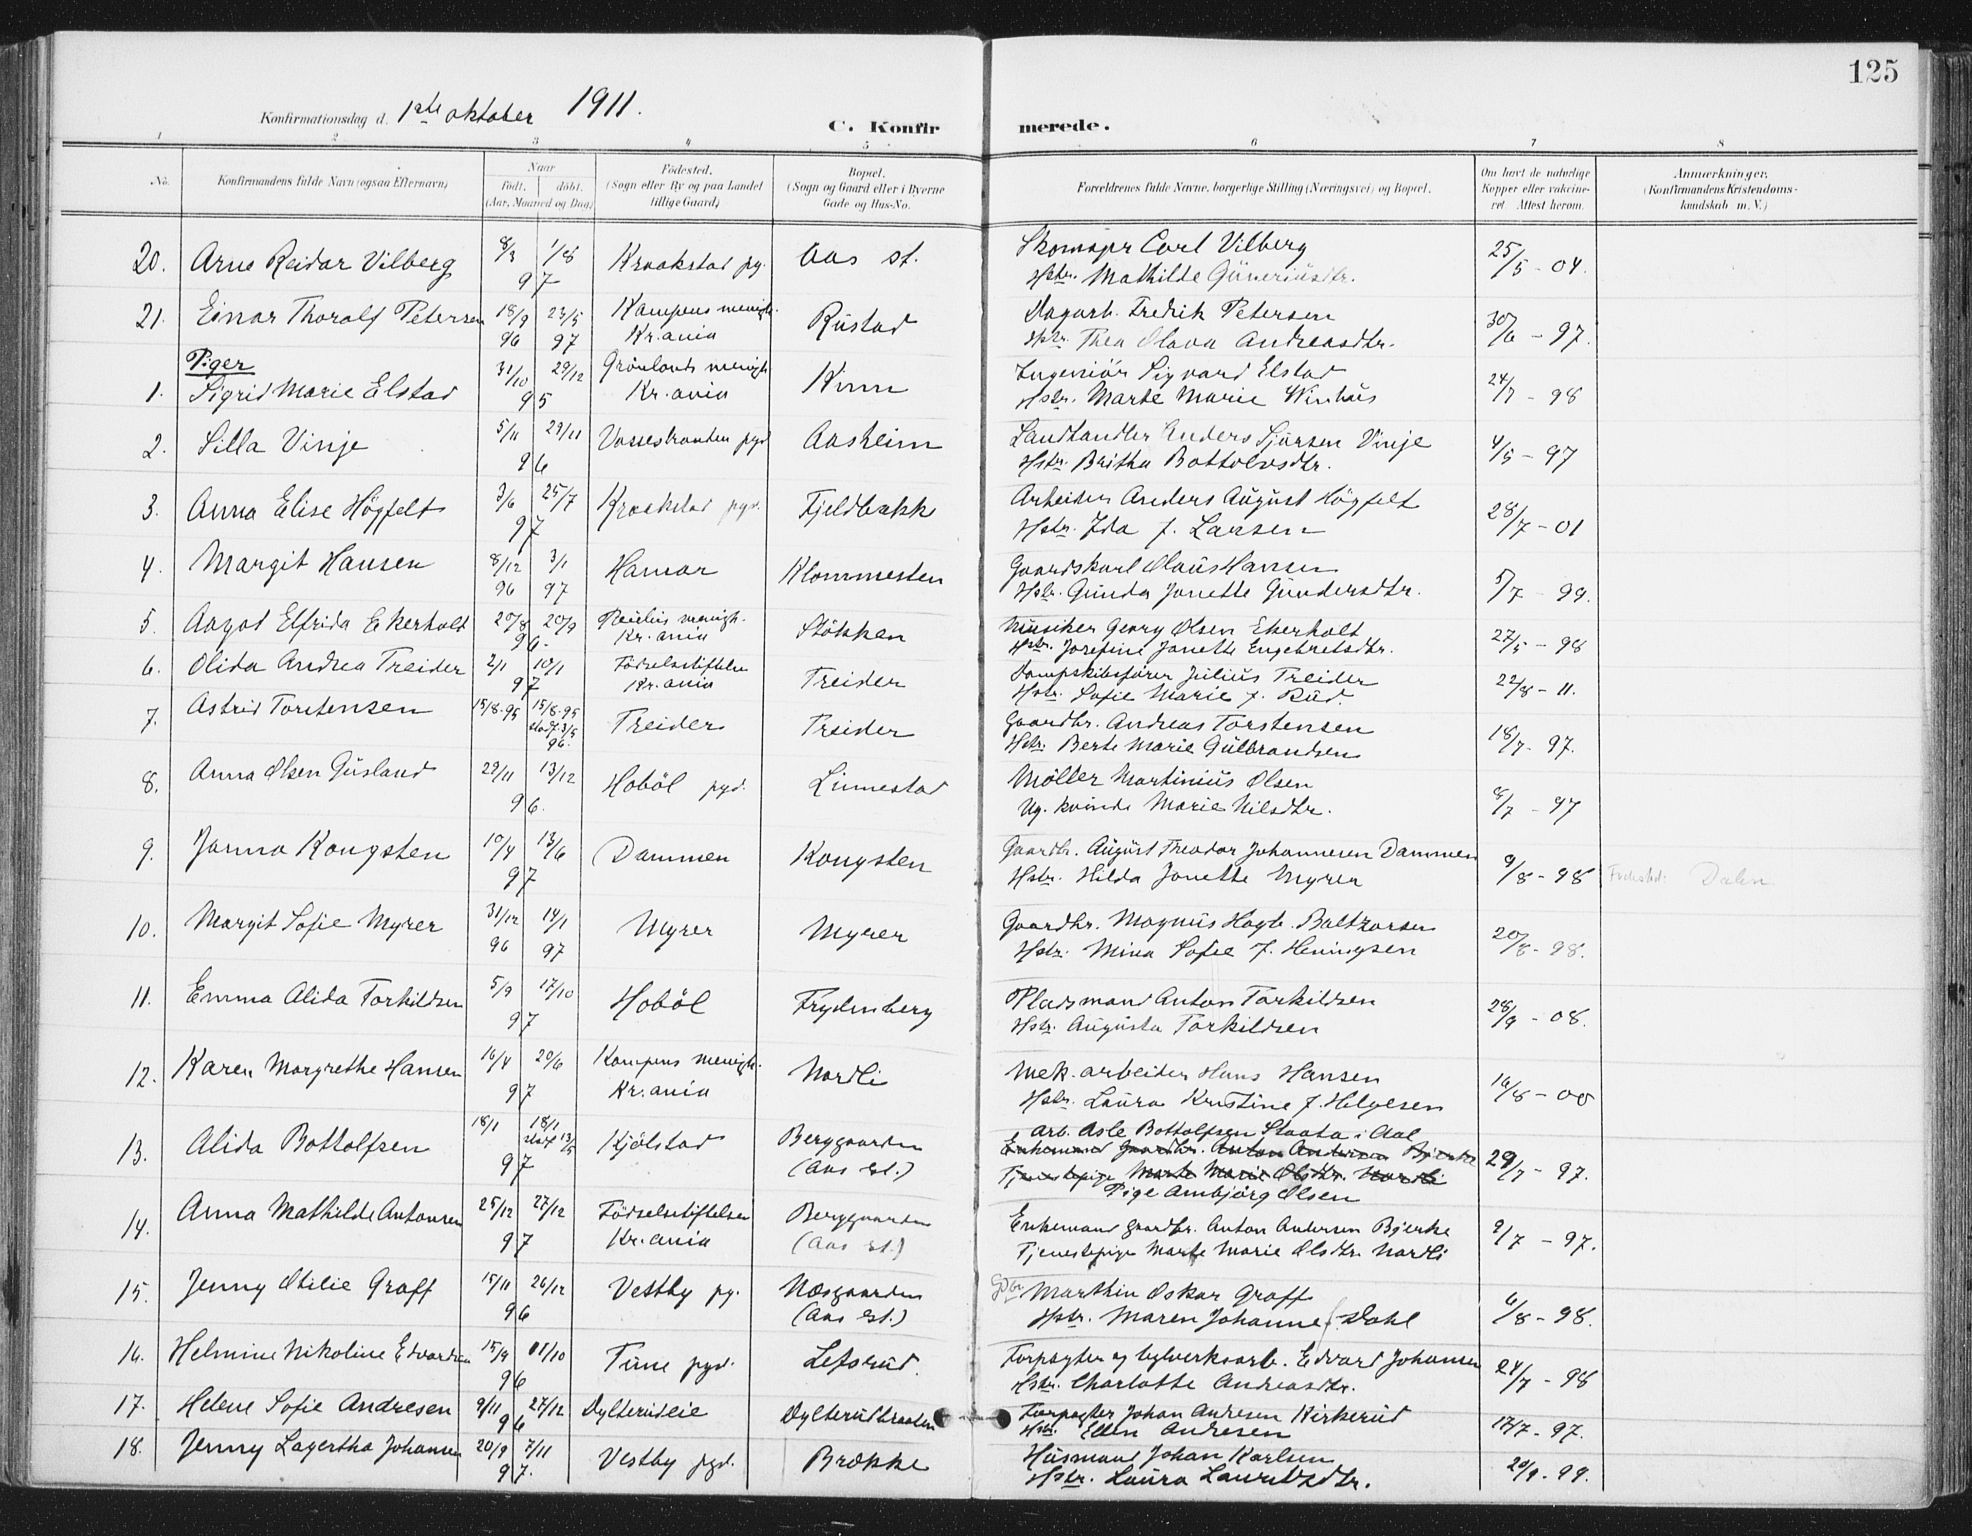 125
Konfirmationsdag d. 1ste oktober 1911.
C. Konfirmerede.
1 2 3 4 5 6 7 8
No. Konfirmandens fulde Navn (ogsaa Efternavn) Naar født. døbt. (Aar, Maaned og Dag) Fødested. (Sogn eller By og paa Landet tillige Gaard) Bopæl. (Sogn og Gaard eller i Byerne Gade og Hus-No. Forældrenes fulde Navne, borgerlige Stilling (Næringsvei) og Bopæl. Om havt de naturlige Kopper eller vakcineret. Attest herom. Anmærkninger. (Konfirmandens Kristendomskundskab m. V.)
20. Arne Reidar Vilberg 8/3 1/8 97 Kraakstad pg. Aas st. Skomager Carl Vilberg 25/5 - 04.
Hstr. Mathilde Guneriusdtr.
21. Einar Thoralf Petersen 18/9 96 23/5 97 Kampens menigh. Kr.ania Rustad Dagarb. Fredrik Petersen 30/6 - 97.
Hstr. Thea Olava Andreasdtr.
Piger
1. Sigrid Marie Elstad 31/10 29/12 95 Grønlands menigh. Kr.ania Kinn Ingeniør Sigvard Elstad 24/7 - 98
Hstr. Marte Marie Winhus
2. Silla Vinje 5/11 29/11 96 Vossestranden pgd. Aasheim Landhandler Anders Sjursen Vinje 4/5 - 97
Hstr. Britha Bottolvsdtr.
3. Anna Elise Högfelt 3/6 25/7 97 Kraakstad pgd. Fjeldbakk Arbeider Anders August Högfelt 28/7 - 01
Hstr. Ida f. Larsen
4. Margit Hansen 8/12 96 3/1 97 Hamar Klommesten Gaardskarl Olaus Hansen 5/7 - 99.
Hstr. Gunda Jonette Gundersdtr.
5. Aagot Elfrida Ekerholt 20/8 20/9 96. Paulus menigh. Kr.ania Støkken Musiker Georg Olsen Ekerholt 27/5 - 98
Hstr. Josefine Jonette Engebretsdtr.
6. Olida Andrea Treider 2/1 10/1 97 Fødselsstiftelsen Kr.ania Treider Dampskibsfører Julius Treider 22/8 - 11.
Hstr. Sofie Marie f. Rud.
7. Astrid Torstensen 15/8-95 15/8-95 stadf. 3/5 96. Treider Treider Gaardbr. Andreas Torstensen 18/7 - 97.
Hstr. Berte Marie Gulbrandsen
8. Anna Olsen Gusland 29/11 13/12 96. Hobøl pgd. Linnestad Møller Martinius Olsen 8/7 - 97
Ug. kvinde Marie Nilsdtr.
9. Janna Kongsten 10/4 13/6 97 Dammen Kongsten Gaardbr. August Theodor Johannesen Dammen 9/8 - 98 Fødested: Dalen
Hstr. Hilda Jonette Myrer
10. Margit Sofie Myrer 31/12 96 14/1 97 Myrer Myrer Gaardbr. Magnus Hagb. Baltzarsen 20/8 - 98.
Hstr. Mina Sofie f. Heningsen
11. Emma Alida Torkildsen 5/9 17/10 97 Hobøl Frydenberg Pladsmand Anton Torkildsen 28/9 - 08.
Hstr. Augusta Torkildsen
12. Karen Margrethe Hansen 16/4 20/6 97 Kampens menigh. Kr.ania Nordli Mek. arbeider Hans Hansen 16/8 - 00
Hstr. Laura Kristine f. Helgesen
13. Alida Bottolfsen 18/1 18/1 stadf 13/5 97 Kjølstad Berggaarden (Aas st.) Arb. Asle Bottolfsen Staata i Aal 29/7 - 97.
Enkemand Gaardbr. Anton Andersen Bjerke
Tjenestepige Marte Marie Olsdtr. Nordli
Pige Ambjørg Olsen
14. Anna Mathilde Antonsen 25/12 27/12 97 Fødselsstiftelsen Kr.ania Berggaarden (Aas st.) Enkemand gaardbr. Anton Andersen Bjerke 9/7 - 97.
Tjenestepige Marte Marie Olsdtr. Nordli
15. Jenny Otilie Graff 15/11 26/12 96 Vestby pg. Næsgaarden (Aas st.) Gdbr. Marthin Oskar Graff 6/8 - 98.
Hstr. Maren Johanne f. Dahl
16. Helmine Nikoline Edvardsen 15/9 01/10 96 Tune pgd. Lefsrud. Forpagter og tglverksarb. Edvard Johansen 24/7 - 98
Hstr. Charlotte Andreasdtr.
17. Helene Sofie Andresen 9/11 27/12 96 Dylterudeie Dylterudbraaten Forpagter Johan Andresen Kirkerud 17/7 - 97.
Hstr. Ellen Andresen
18. Jenny Lagertha Johansen 20/9 7/11 97. Vestby pgd. Brække Husmand Johan Karlsen 20/9 - 99.
Hstr. Laura Lauritzdtr.